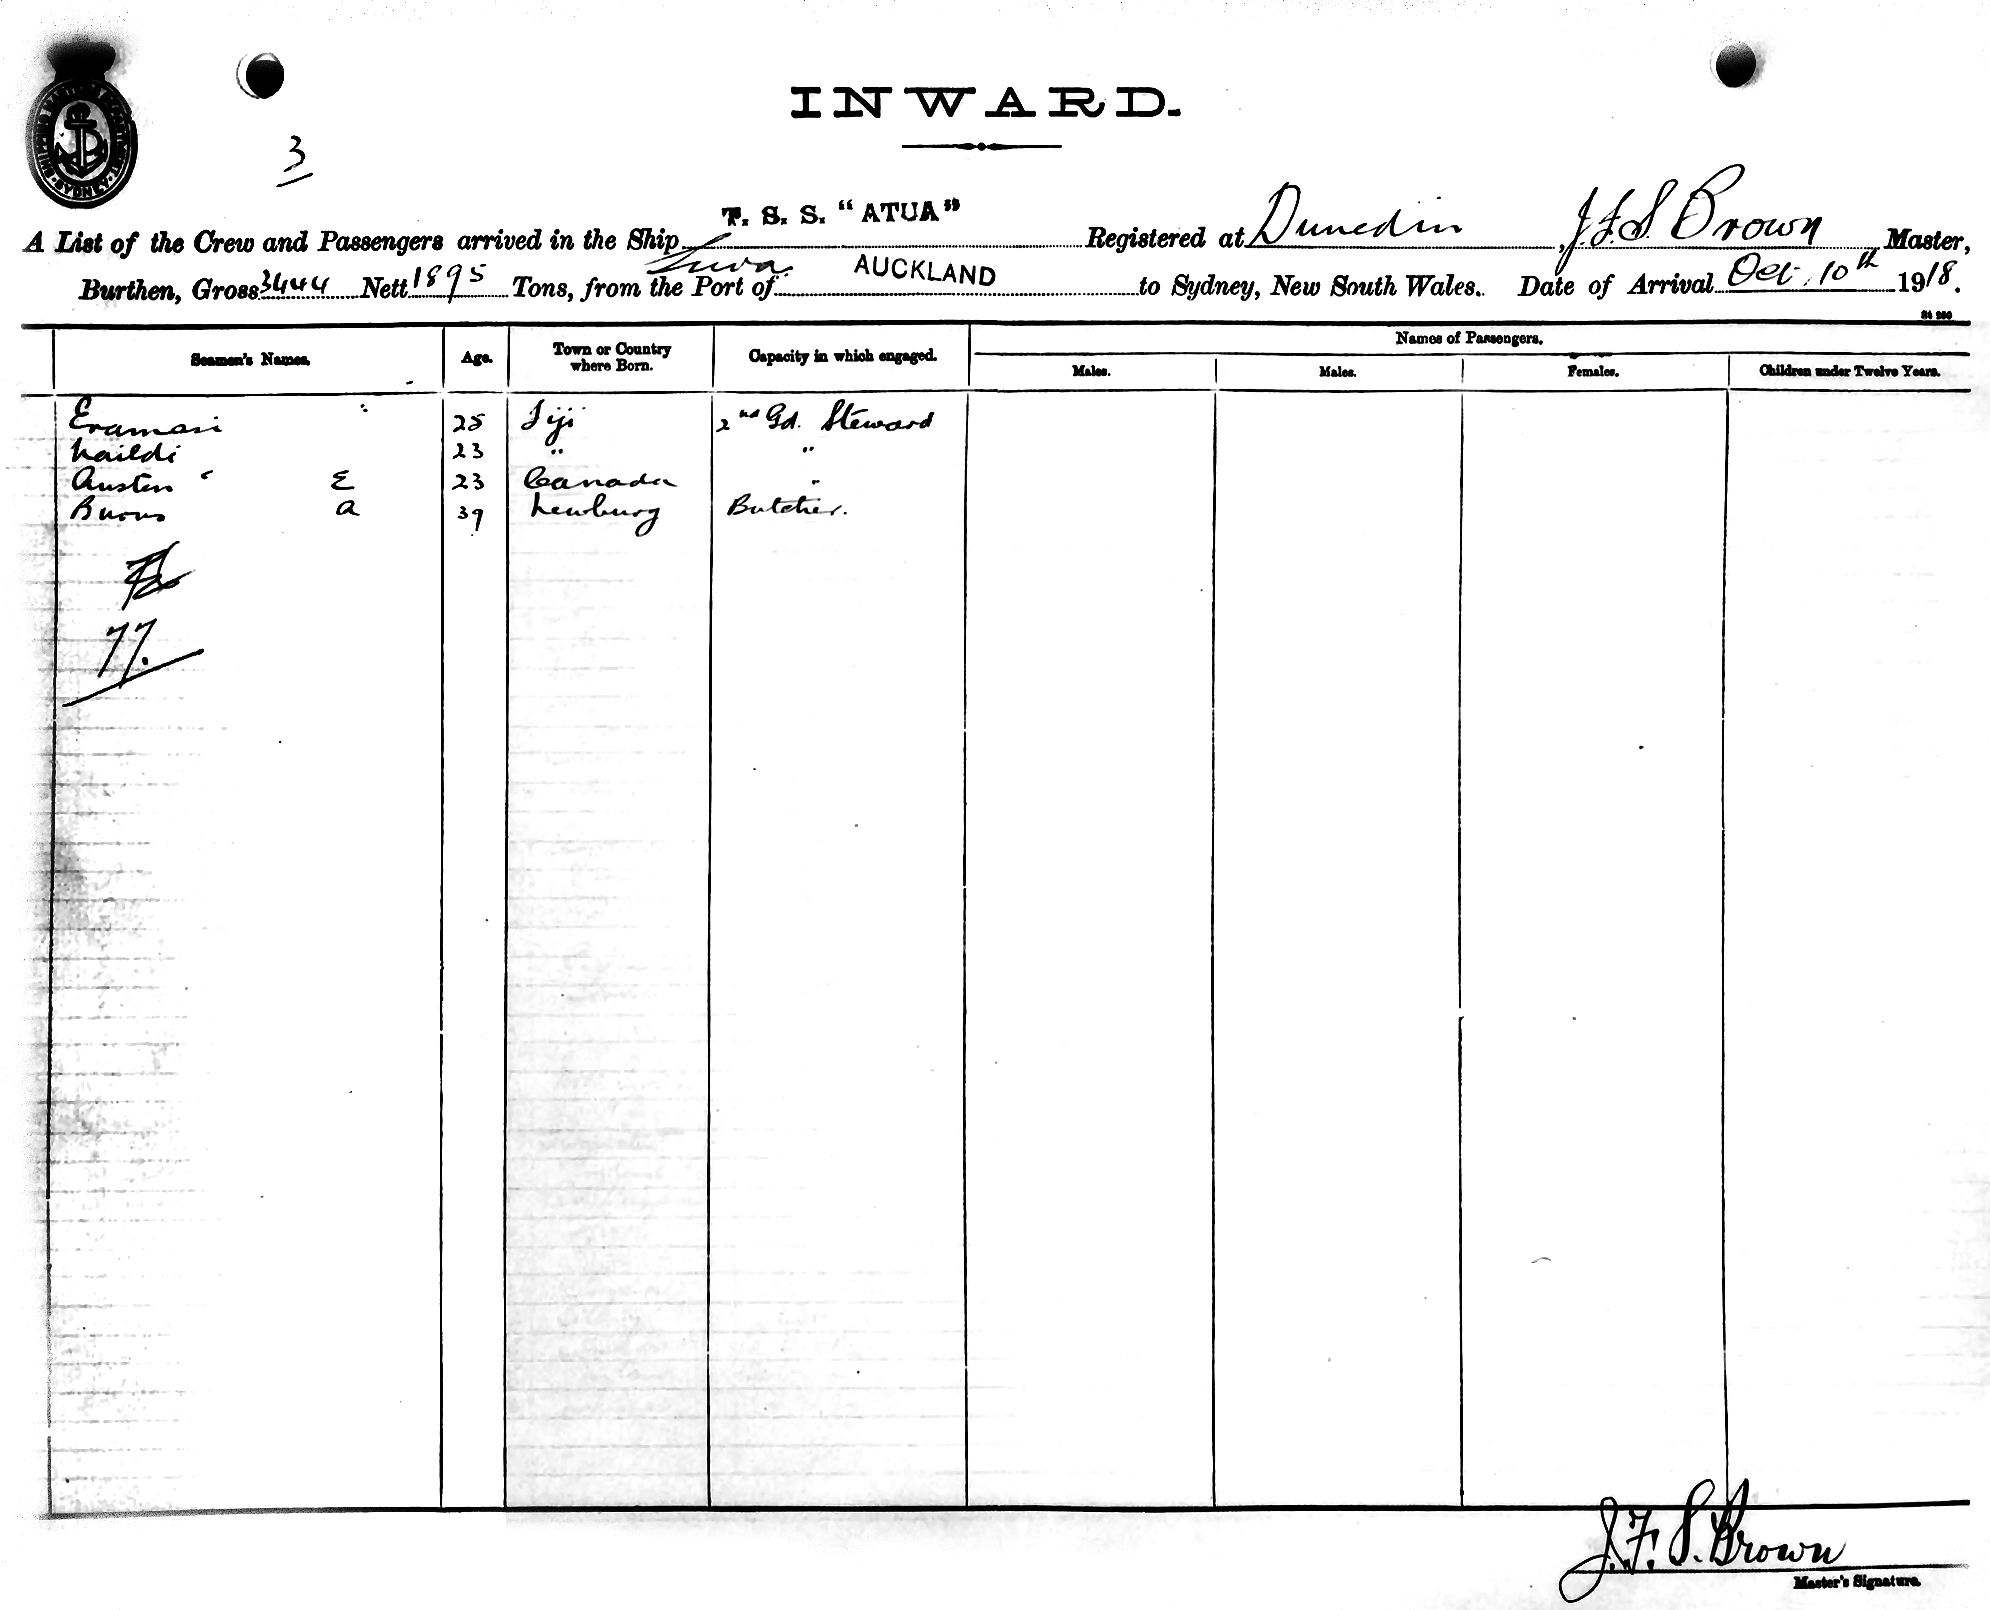 INWARD.
3
T. S. S. "ATUA"
A List of the Crew and Passengers arrived in the Ship Registered at Dunedin, J. F. S. Brown Master,
Suva. AUCKLAND
Burthen, Gross 3444 Nett 1895 Tons, from the Port of to Sydney, New South Wales. Date of Arrival Oct. 10th 1918.
Seamen's Names. Age. Town or Country where Born. Capacity in which engaged. Names of Passengers.
Males. Males. Females. Children under Twelve Years.
Eramasi 25 Fiji 2nd Gd. Steward
Naildi 23 " "
Austen E 23 Canada "
Burns A 39 Newburg Butcher.
77.
J. F. S. Brown
Master's Signature.